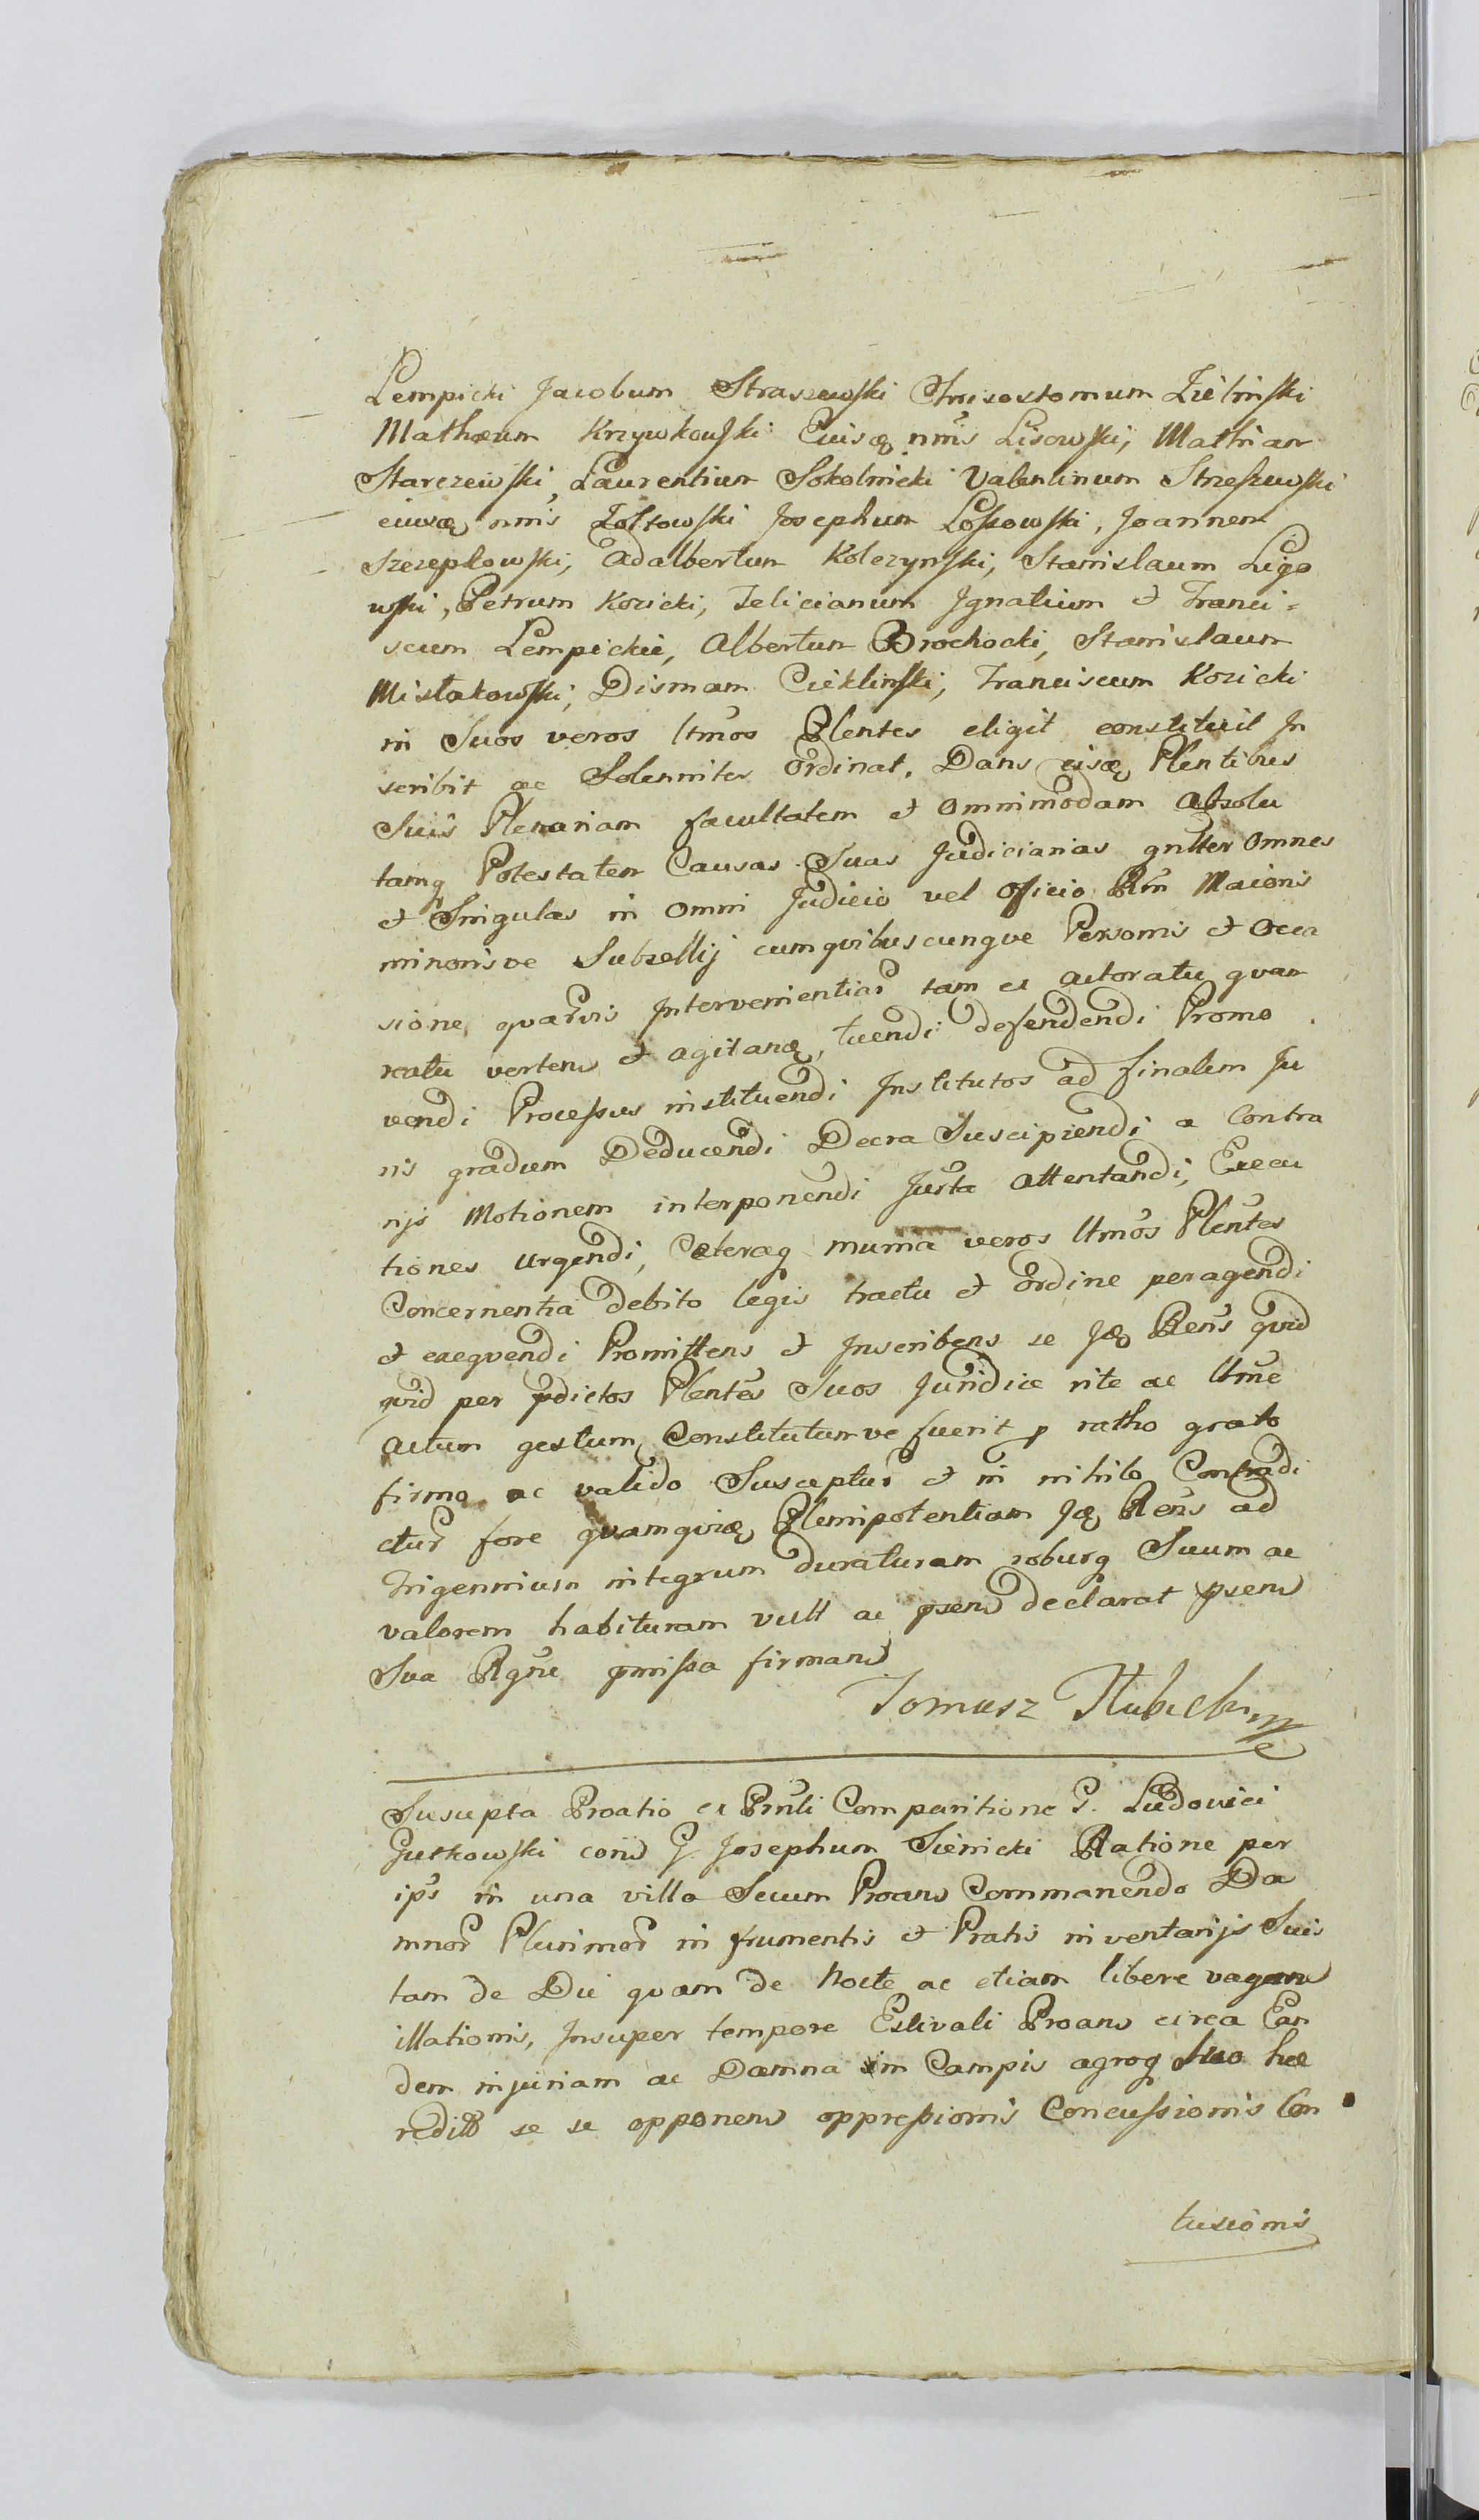 Lempicki Jacobum Straszewski Chrisostomum Zielinski
Mathæum Krzywkowski Eiusq nmīs Lisowski, Mathiam
Starczewski, Laurentium Sokolnicki Valentinum Strzeszewski
eiusq nmis Zołtowski Josephum Lossowski, Joannem
Szczepkowski, Adalbertum Kolczynski, Stanislaum Ligo
wski, Petrum Kozicki, Felicianum Ignatium et Franci-
scum Lempickie, Albertum Brochocki, Stanislaum
Mistakowski, Dismam Cieklinski, Franciscum Kozicki
in Suos veros ltmos Plentes eligit constituit In
scribit ac Solenniter ordinat. Dans eisq Plentibus
Suis Plenariam facultatem et omnimodam Absolu
tamq Potestatem Causas Suas Judiciarias gnlter omnes
et Singulas in omni Judicio vel Officio Rni Maioris
minorisve Subsellij cumquibuscunque Personis et Occa
sione quarvis Intervenientiar tam ex actoratu quam
reatu verten et agitanq, tuendi defendendi Promo
vendi Processus instituendi Institutos ad finalem Ju
ris gradum Deducendi Decra Suscipiendi a Contra
rijs Motionem interponendi Jurta attentandi, Execu
tiones Urgendi, Cæteraq veros ltmos Plentes
Concernentia debito legis tractu et ordine peragendi
et exequendi Promittens et Inscribens se Jq Rens quid
quid per pdictos Plentes Suos Juridice rite ac ltme
actum gestum, Constitutumve fuerit p ratho grato
firmo ac valido Suscepturr et in nihilo Contradi
ctur fore quamquiq Plenipotentiam Jq Rens ad
Trigennium integrum duraturam roburq Suum ac
valorem habituram vult ac psen declarat psen
Sua Rgne pmissa firman
Tomasz Kubicki mp
Suscepta Proatio ex Prnli Comparitione G. Ludovici
Gutkowski con G. Josephum Sienicki Ratione per
ips in una villa Secum Proan Commanendo Da
mnor Plurimor in frumentis et Pratis inventarijs Suis
tam de Die quam de Nocte ac etiam libere vagan
illationis, Insuper tempore Estivali Proan circa Ean
dem injuriam ac Damna in Campis agroq Suo hæ
redito se se opponen oppressionis Concussionis Con
tusionis